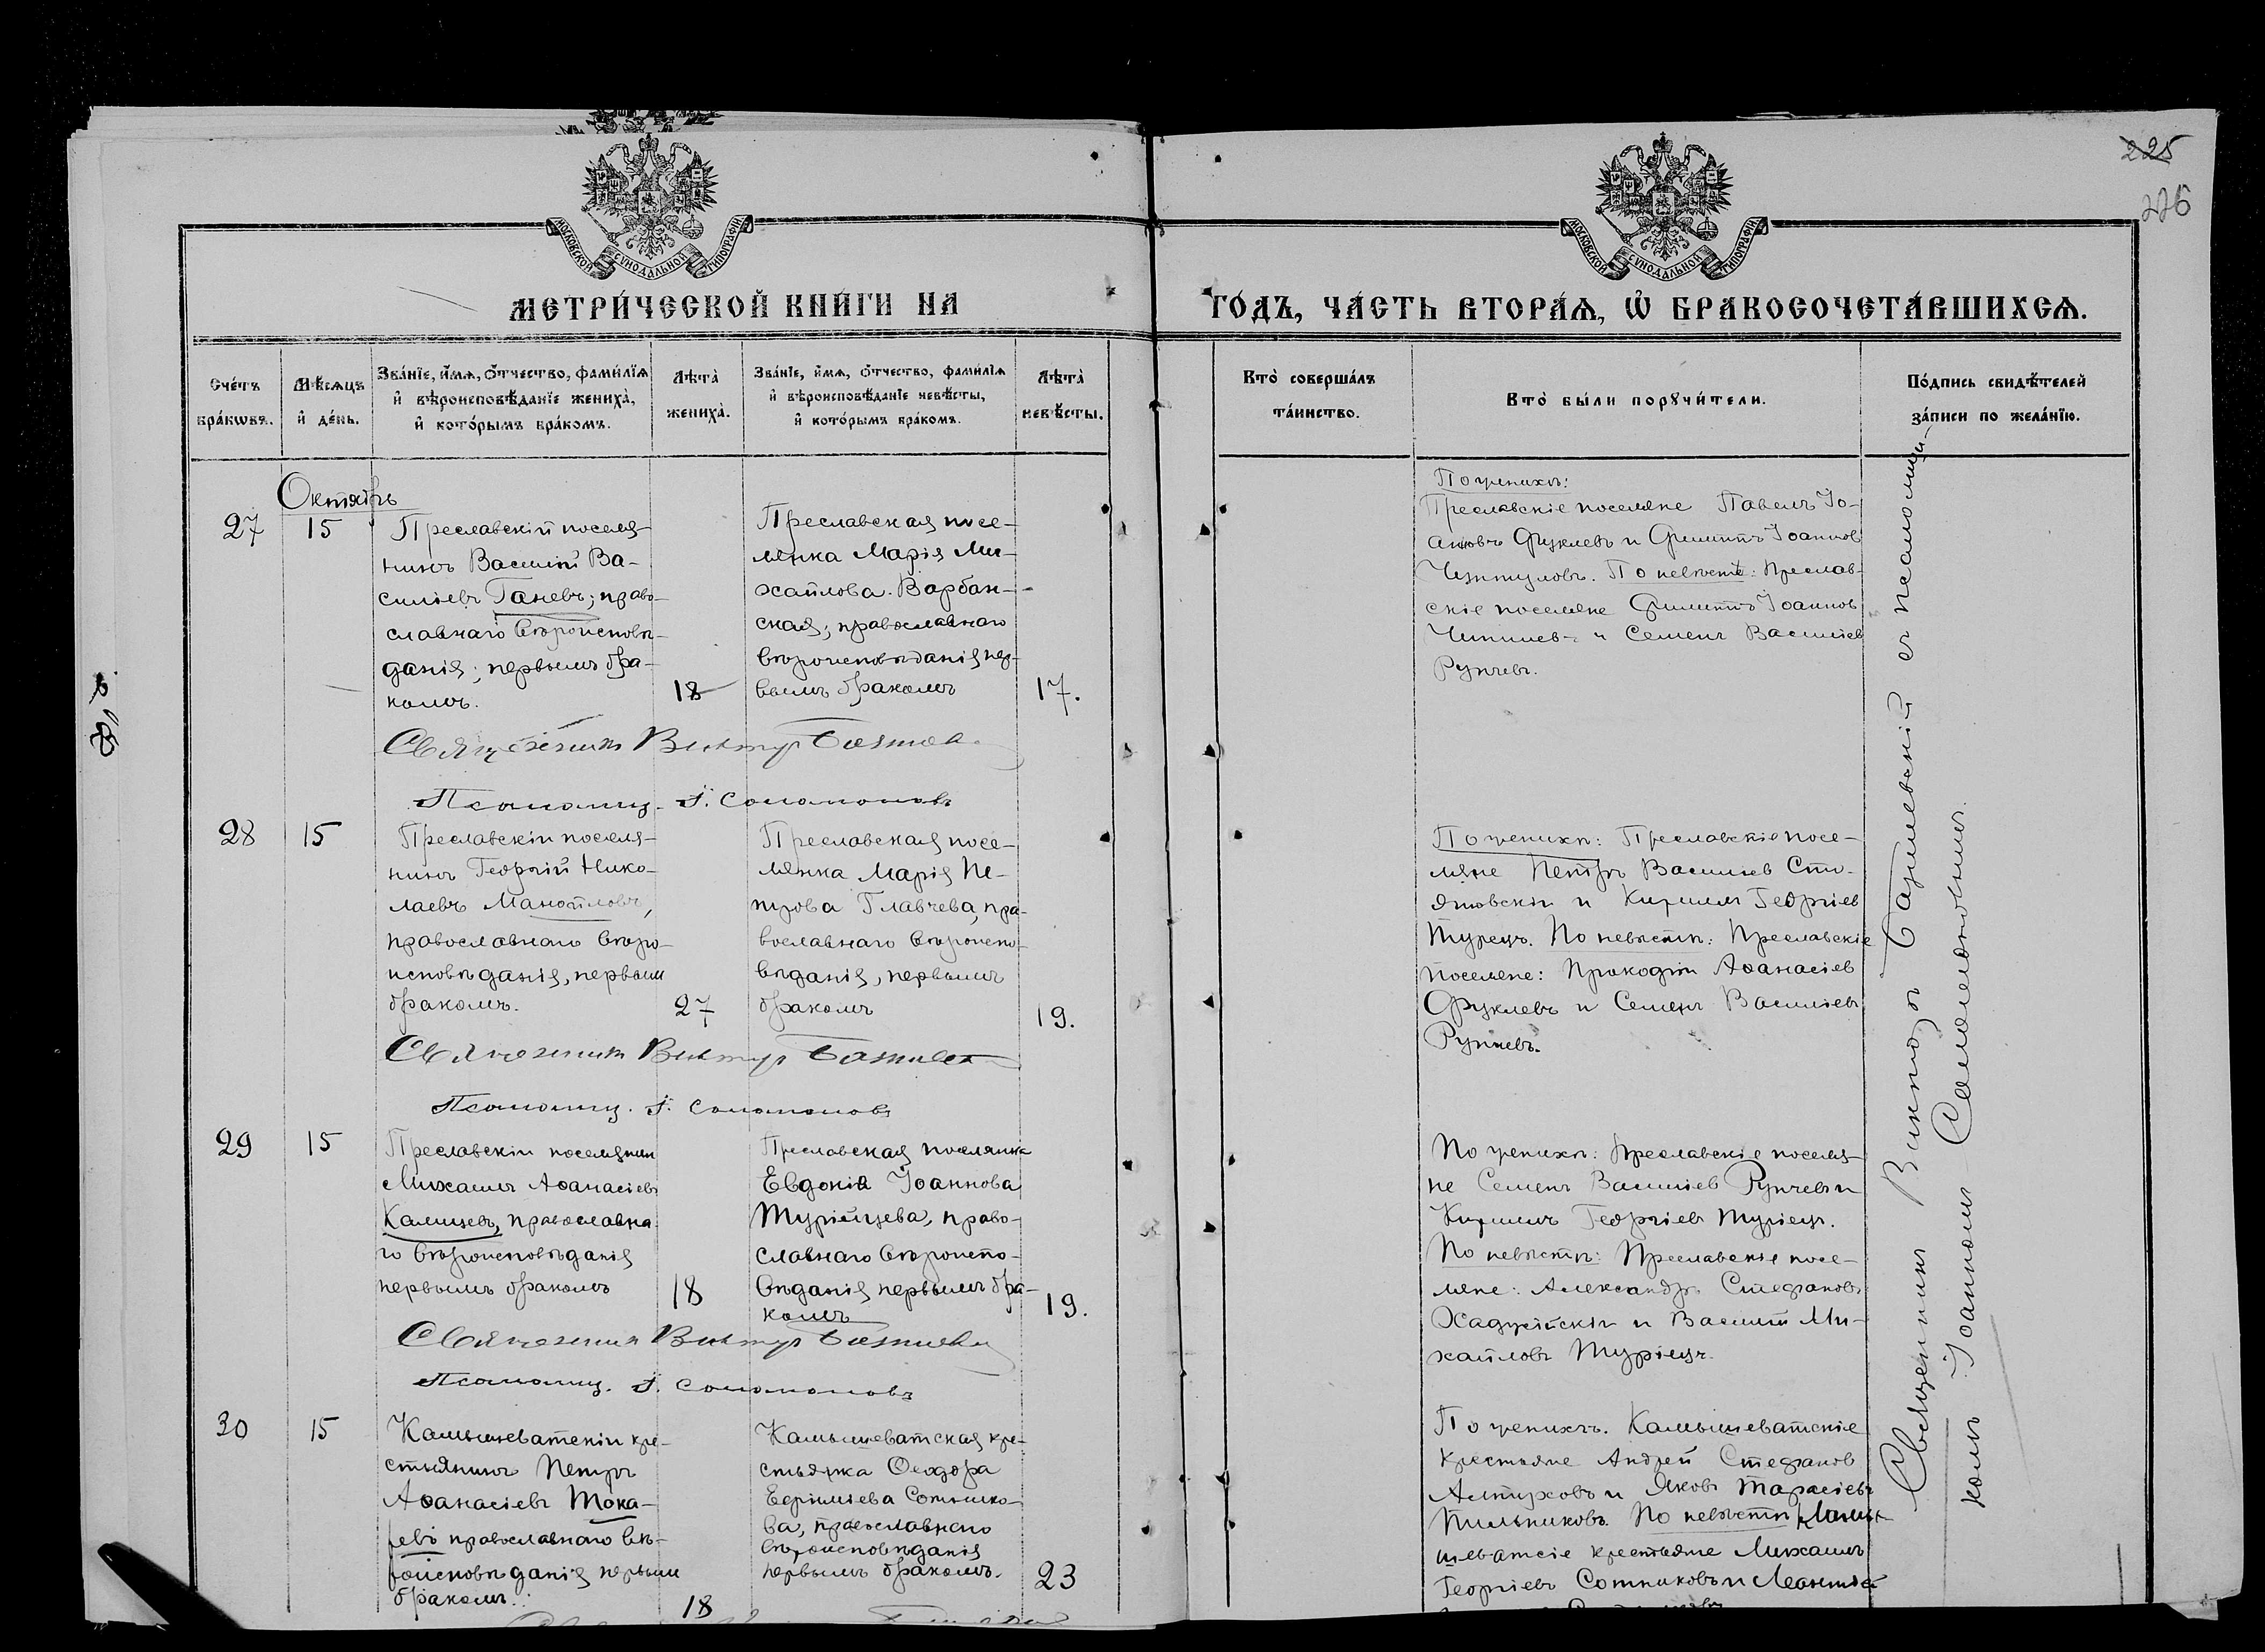 225
276
МОСКОВСКОЙ СѴНОДАЛЬНОЙ ТИПОГРАФІИ
МОСКОВСКОЙ СѴНОДАЛЬНОЙ ТИПОГРАФІИ
МЕТРИ́ЧЕСКОЙ КНИ́ГИ НА
ГО́ДЪ, ЧА́СТЬ ВТОРА́Ѧ, Ѽ БРАКОСОЧЕТА́ВШИХСѦ.
Сче́тъ
бра́кѡвъ.
Мѣ́сѧцъ
и҆ де́нь.
Зва́нїе, и҆́мѧ, ѻ҆́тчество, фами́лїѧ
и҆ вѣроисповѣ́данїе жениха̀,
и҆ кото́рымъ бра́комъ.
Лѣта̀
жениха̀.
Зва́нїе, и҆́мѧ, ѻ҆́тчество, фами́лїѧ
и҆ вѣроисповѣ́данїе невѣ́сты,
и҆ кото́рымъ бра́комъ.
Лѣта̀
невѣ́сты.
Кто̀ соверша́лъ
та́инство.
Кто̀ бы́ли порꙋчи́тели.
По́дпись свидѣ́телей
за́писи по жела́нїю.
Октябрь
27
15
Преславскій поселя-
нинъ Василій Ва-
силіевъ Ганевъ; право-
славнаго вѣроисповѣ-
данія; первымъ бра-
комъ.
18
Преславская посе-
лянка Марія Ми-
хайлова Варбан-
ская; православнаго
вѣроисповѣданія пер-
вымъ бракомъ
17.
По женихѣ:
Преславскіе поселяне Павелъ Іо-
анновъ Фуклевъ и Филиппъ Іоаннов
По невѣстѣ: Преслав-
скіе поселяне Филиппъ Іоаннов
и Семенъ Василіев
Рупчевъ.
Священникъ Викторъ
Псаломщ. І. Соломоновъ
28
15
Преславскій поселя-
нинъ Георгій Нико-
лаевъ Манойловъ,
православнаго вѣро-
исповѣданія, первымъ
бракомъ.
27
Преславская посе-
лянка Марія Пе-
трова Главчева, пра-
вославнаго вѣроиспо-
вѣданія, первымъ
бракомъ
19.
По женихѣ: Преславскіе посе-
ляне Петръ Василіев Сто-
яновскій и Кириллъ Георгіев
Турецъ. По невѣстѣ: Преславскіе
поселяне: Прокофій Аѳанасіев
Фруклевъ и Семенъ Василіевъ
Рупчевъ.
Священникъ Викторъ
Псаломщ. І. Соломоновъ
29
15
Преславскій поселянинъ
Михаилъ Аѳанасіевъ
Калищевъ, православна-
го вѣроисповѣданія
первымъ бракомъ
18
Преславская поселянка
Евдокія Іоаннова
Турійцева, право-
славнаго вѣроиспо-
вѣданія первымъ бра-
комъ
19.
По женихѣ: Преславскіе поселя-
не Семенъ Василіев Рупчевъ и
Кириллъ Георгіев Туріецъ.
По невѣстѣ: Преславскіе посе-
ляне: Александръ Стефановъ
Хаджійскій и Василій Ми-
хайловъ Туріецъ.
Священникъ Викторъ
Псаломщ. І. Соломоновъ
30
15
Камышеватскій кре-
стьянинъ Петръ
Аѳанасіевъ Тока-
ревъ православнаго вѣ-
роисповѣданія первымъ
бракомъ.
18
Камышеватская кре-
стьянка Ѳеодора
Ефиміева Сотнико-
ва, православнаго
вѣроисповѣданія
первымъ бракомъ.
23
По женихѣ. Камышеватскіе
крестьяне Андрей Стефанов
Алтуховъ и Яковъ Тарасіевъ
Пильниковъ. По невѣстѣ Камы-
шеватсіе крестьяне Михаилъ
Георгіевъ Сотниковъ и Леонтій
Священникъ Викторъ Базилевскій съ псаломщи-
комъ Іоанномъ Соломоновымъ.